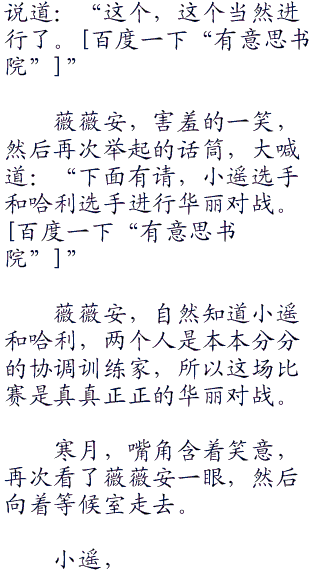 说道：“这个，这个当然进
行了。[百度一下“有意思书
院”]”
薇薇安，害羞的一笑，
然后再次举起的话筒，大喊
道：“下面有请，小遥选手
和哈利选手进行华丽对战。
[百度一下“有意思书
院”]”
薇薇安，自然知道小遥
和哈利，两个人是本本分分
的协调训练家，所以这场比
赛是真真正正的华丽对战。
寒月，嘴角含着笑意，
再次看了薇薇安一眼，然后
向着等候室走去。
小遥，